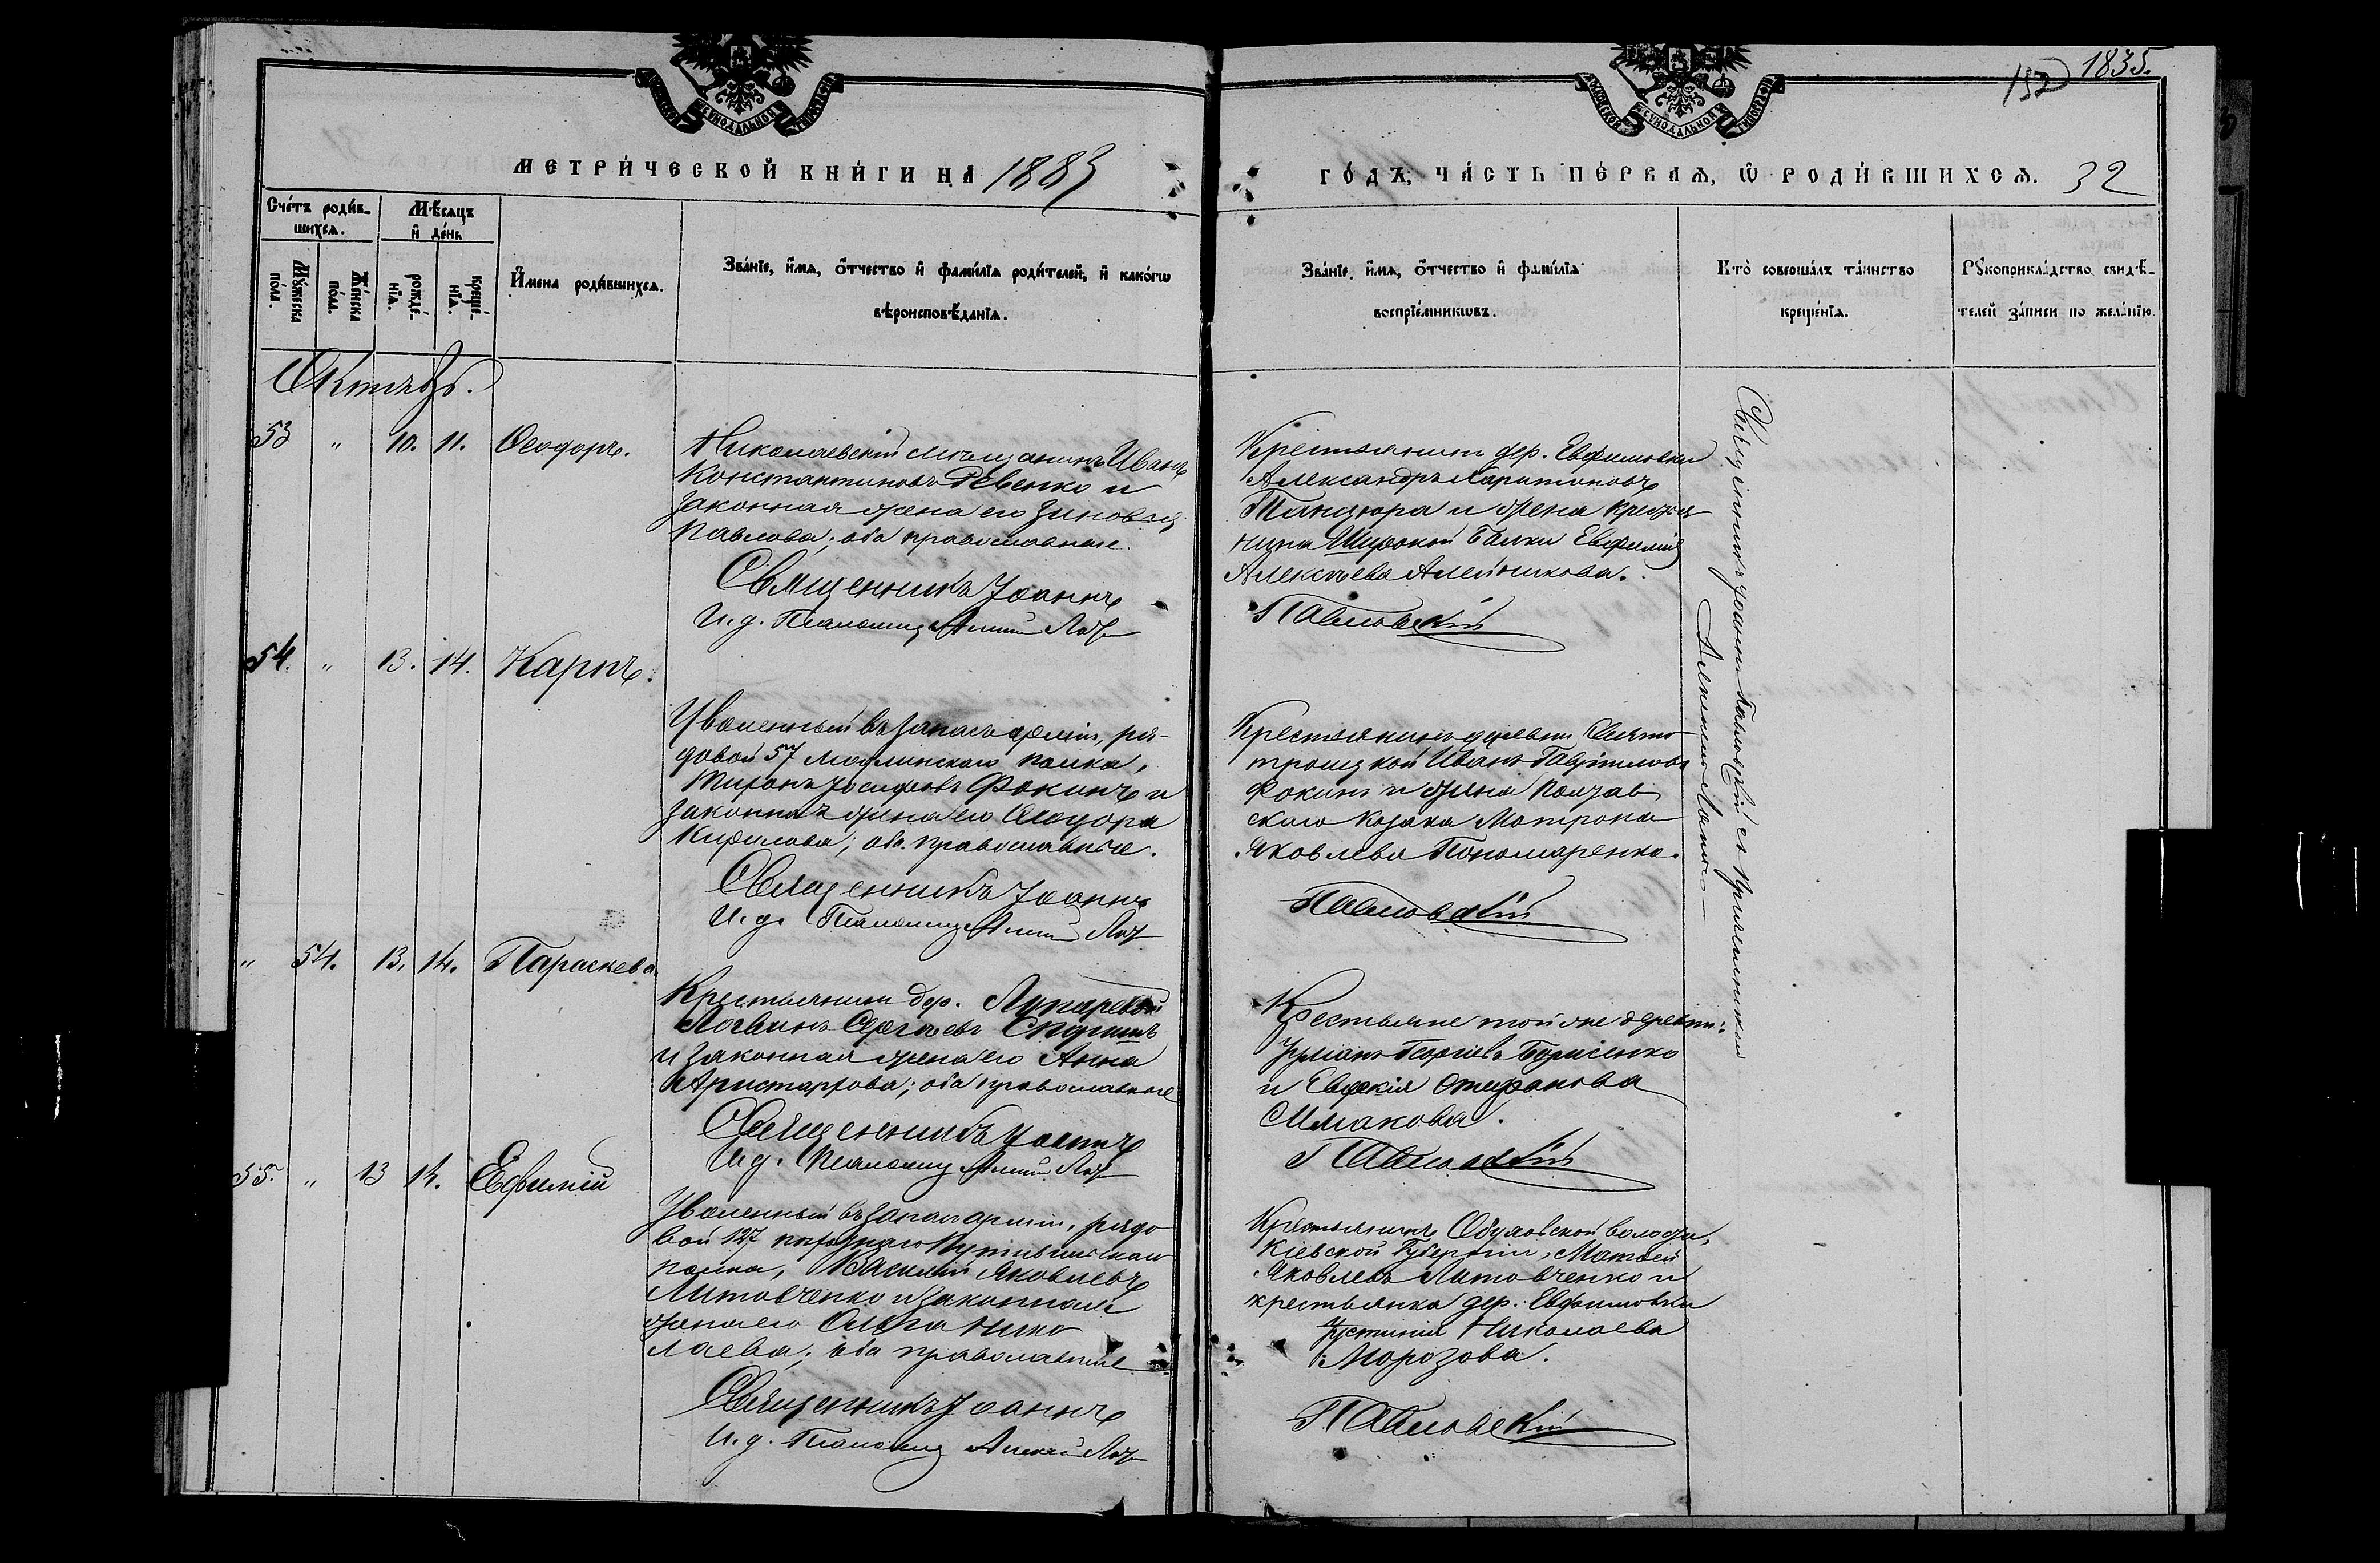 1835.
152
МЕТРИ́ЧЕСКОЙ КНИ́ГИ НА 1883
ГО́ДЪ, ЧА́СТЬ ПЕ́РВАЯ, Ѡ РОДИ́ВШИХСЯ. 32
Сче́тъ роди́в-
шихся.
Мѣ́сяцъ
и де́нь
Му́жеска
по́ла.
Же́нска
по́ла.
рожде́-
нїѧ.
креще́-
нїѧ.
И́мена роди́вшихся.
Зва́нїе, и́мѧ, ѻ́тчество и фами́лїѧ роди́телей, и како́гѡ
вѣроисповѣ́данїѧ.
Зва́нїе, и́мѧ, ѻ́тчество и фами́лїѧ
воспрїе́мникѡвъ.
Кто̀ соверша́лъ та́инство
креще́нїѧ.
Рꙋкоприкла́дство свидѣ́-
телей за́писи по жела́нїю.
Октябрь.
53 " 10. 11. Ѳеодоръ.
Николаевскій мѣщанинъ Иванъ
Константиновъ Ревенко и
законная жена его Зиновія
Павлова; оба православные.
Священникъ Іоаннъ
И. д. Псаломщ.
Крестьянинъ дер. Евфимовки
Александръ Харитоновъ
Танцюра и жена
Широкой Балки Евфимія
Алексѣева Алейникова.
Павловскій
Священникъ Іоаннъ Павловскій съ
54. " 13. 14. Карпъ.
Уволенный въ запасъ арміи, ря-
довой 57 Модлинскаго полка,
Миронъ Іосифовъ Фокинъ и
законная жена его Ѳеодора
Кирилова; оба православные.
Священникъ Іоаннъ
И. д. Псаломщ.
Крестьянинъ деревни Свято-
троицкой Иванъ Гавріиловъ
Фокинъ и жена Полтав
скаго козака Матрона
Яковлева Пономаренко.
Павловскій
" 54. 13. 14. Параскева.
Крестьянинъ дер. Лупаревой
Логвинъ Сергѣевъ
и законная жена его Анна
Аристархова; оба православные
Священникъ Іоаннъ
И. д. Псаломщ.
Крестьяне той же деревни:
Георгіевъ Борисенко
и Евдокія Стефанова
Павловскій
55. " 13 14. Евфимій
Уволенный въ запасъ арміи, рядо
вой 127 пѣхотнаго Путивльскаго
полка, Василій Яковлевъ
Литовченко и законная
жена его Ольга Нико
лаева; оба православные
Священникъ Іоаннъ
И. д. Псаломщ.
Крестьянинъ Обуховской волости,
Кіевской Губерніи, Матѳей
Яковлевъ Литовченко и
крестьянка дер. Евфимовки
Іустинія Николаева
Морозова.
Павловскій